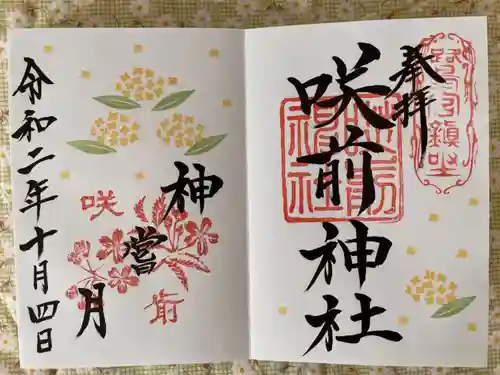 奉拝
咲前神社
咲前
神社
神嘗月
咲
前
令和二年十月四日